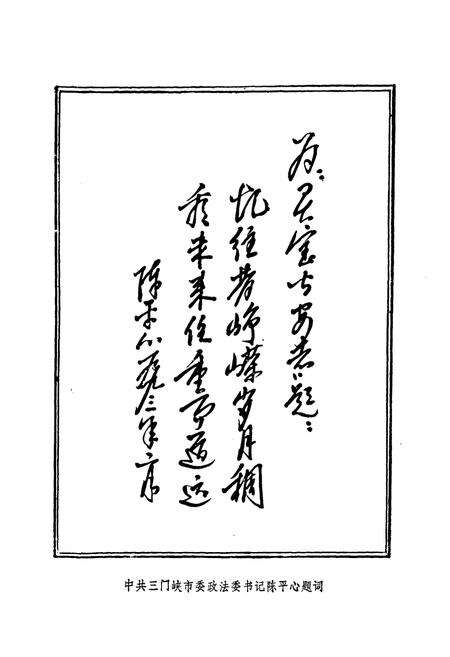 为灵宝公安志题:
忆往昔峥嵘岁月稠
看未来任重而道远
陈平心
中共三门峡市委政法委书记陈平心题词